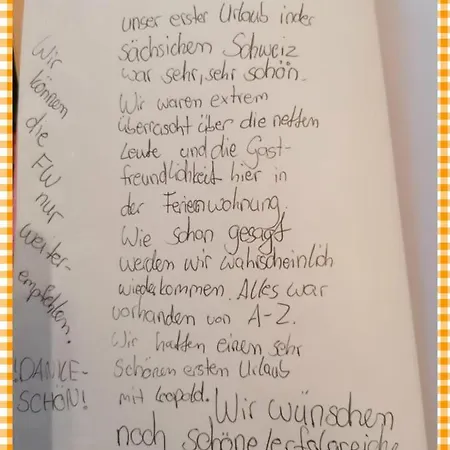 unser erster Urlaub in der
sächsichem Schweiz
war sehr, sehr schön.
Wir waren extrem
überrascht über die netten
Leute und die Gast-
freundlichkeit hier in
der Ferienwohnung.
Wie schon gesagt
werden wir wahrscheinlich
wiederkommen. Alles war
vorhanden von A-Z.
Wir hatten einen sehr
schönen ersten Urlaub
mit Leopold. Wir wünschen
noch schöne/erfolgreiche
Wir
können
die FW
nur
weiter-
empfehlen.
!DANKE-
SCHÖN!